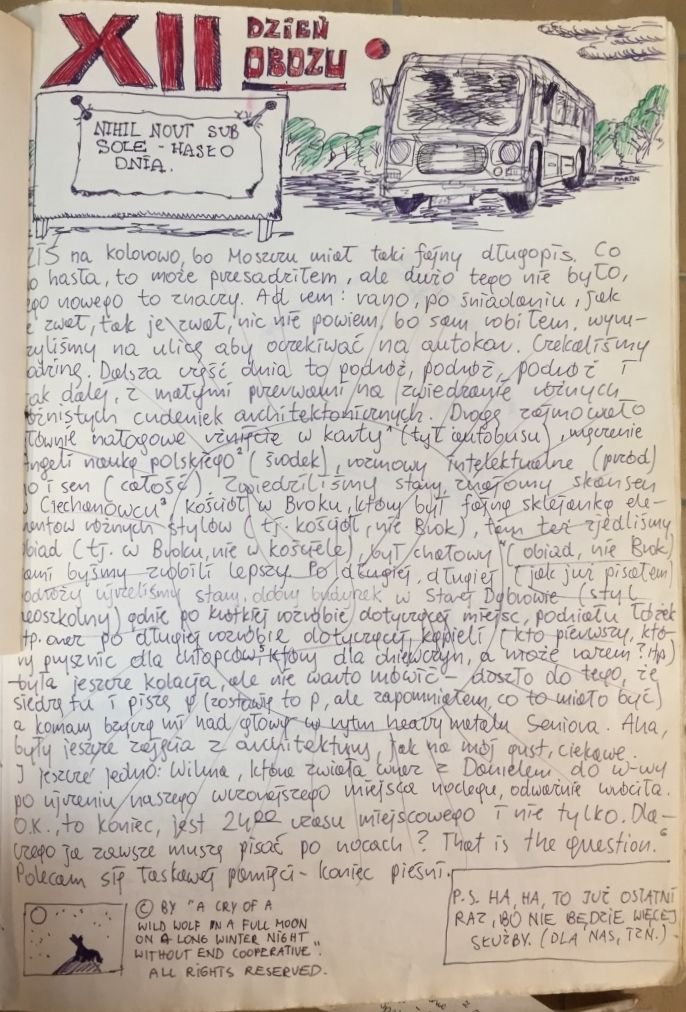 XII DZIEŃ
OBOZU
NIHIL NOVI SUB
SOLE - HASŁO
DNIA.
MARTIN
ZIŚ na kolorowo, bo Moszczu miał taki fajny długopis. Co
o hasła, to może przesadziłem, ale dużo tego nie było,
ego nowego to znaczy. Ad rem: rano, po śniadaniu, jak
e zwał, tak je zwał, nic nie powiem, bo sam robiłem, wyru-
zyliśmy na ulicę aby oczekiwać na autokar. Czekaliśmy
odzinę. Dalsza część dnia to podróż, podróż, podróż i
ak dalej, z małymi przerwami na zwiedzanie różnych
óżnistych cudeniek architektonicznych. Drogę zajmowało
łównie nałogowe rżnięcie w karty¹ (tył autobusu), męczenie
Angeli nauką polskiego² (środek), rozmowy intelektualne (przód)
no i sen (całość). Zwiedziliśmy stary, znajomy skansen
w Ciechanowcu³ kościół w Broku, który był fajną sklejanką ele-
mentów różnych stylów (tj. kościół, nie Brok), tam też zjedliśmy
obiad (tj. w Broku, nie w kościele), był chałowy⁴ (obiad, nie Brok)
ami byśmy zrobili lepszy. Po długiej, długiej (jak już pisałem)
podróży ujrzeliśmy stary, dobry budynek w Starej Dąbrowie (styl
eoszkolny) gdzie po krótkiej rozróbie dotyczącej miejsc, podziału łóżek
itp. oraz po długiej rozróbie dotyczącej kąpieli (kto pierwszy, któ-
ry prysznic dla chłopców⁵, który dla dziewczyn, a może razem? itp)
była jeszcze kolacja, ale nie warto mówić - doszło do tego, że
siedzę tu i piszę p (zostawię to p, ale zapomniałem, co to miało być)
a komary bzyczą mi nad głową w rytm heavy metalu Seniora. Aha,
były jeszcze zajęcia z architektury, jak na mój gust, ciekawe.
I jeszcze jedno: Wilma, która zwiała wraz z Danielem do W-wy
po ujrzeniu naszego wczorajszego miejsca noclegu, odważnie wróciła.
O.K., to koniec, jest 24⁰⁰ czasu miejscowego i nie tylko. Dla-
czego ja zawsze muszę pisać po nocach? That is the question.⁶
Polecam się łaskawej pamięci - koniec pieśni.
© BY "A CRY OF A
WILD WOLF IN A FULL MOON
ON A LONG WINTER NIGHT
WITHOUT END COOPERATIVE".
ALL RIGHTS RESERVED.
P.S. HA, HA, TO JUŻ OSTATNI
RAZ, BO NIE BĘDZIE WIĘCEJ
SŁUŻBY. (DLA NAS, TZN.)